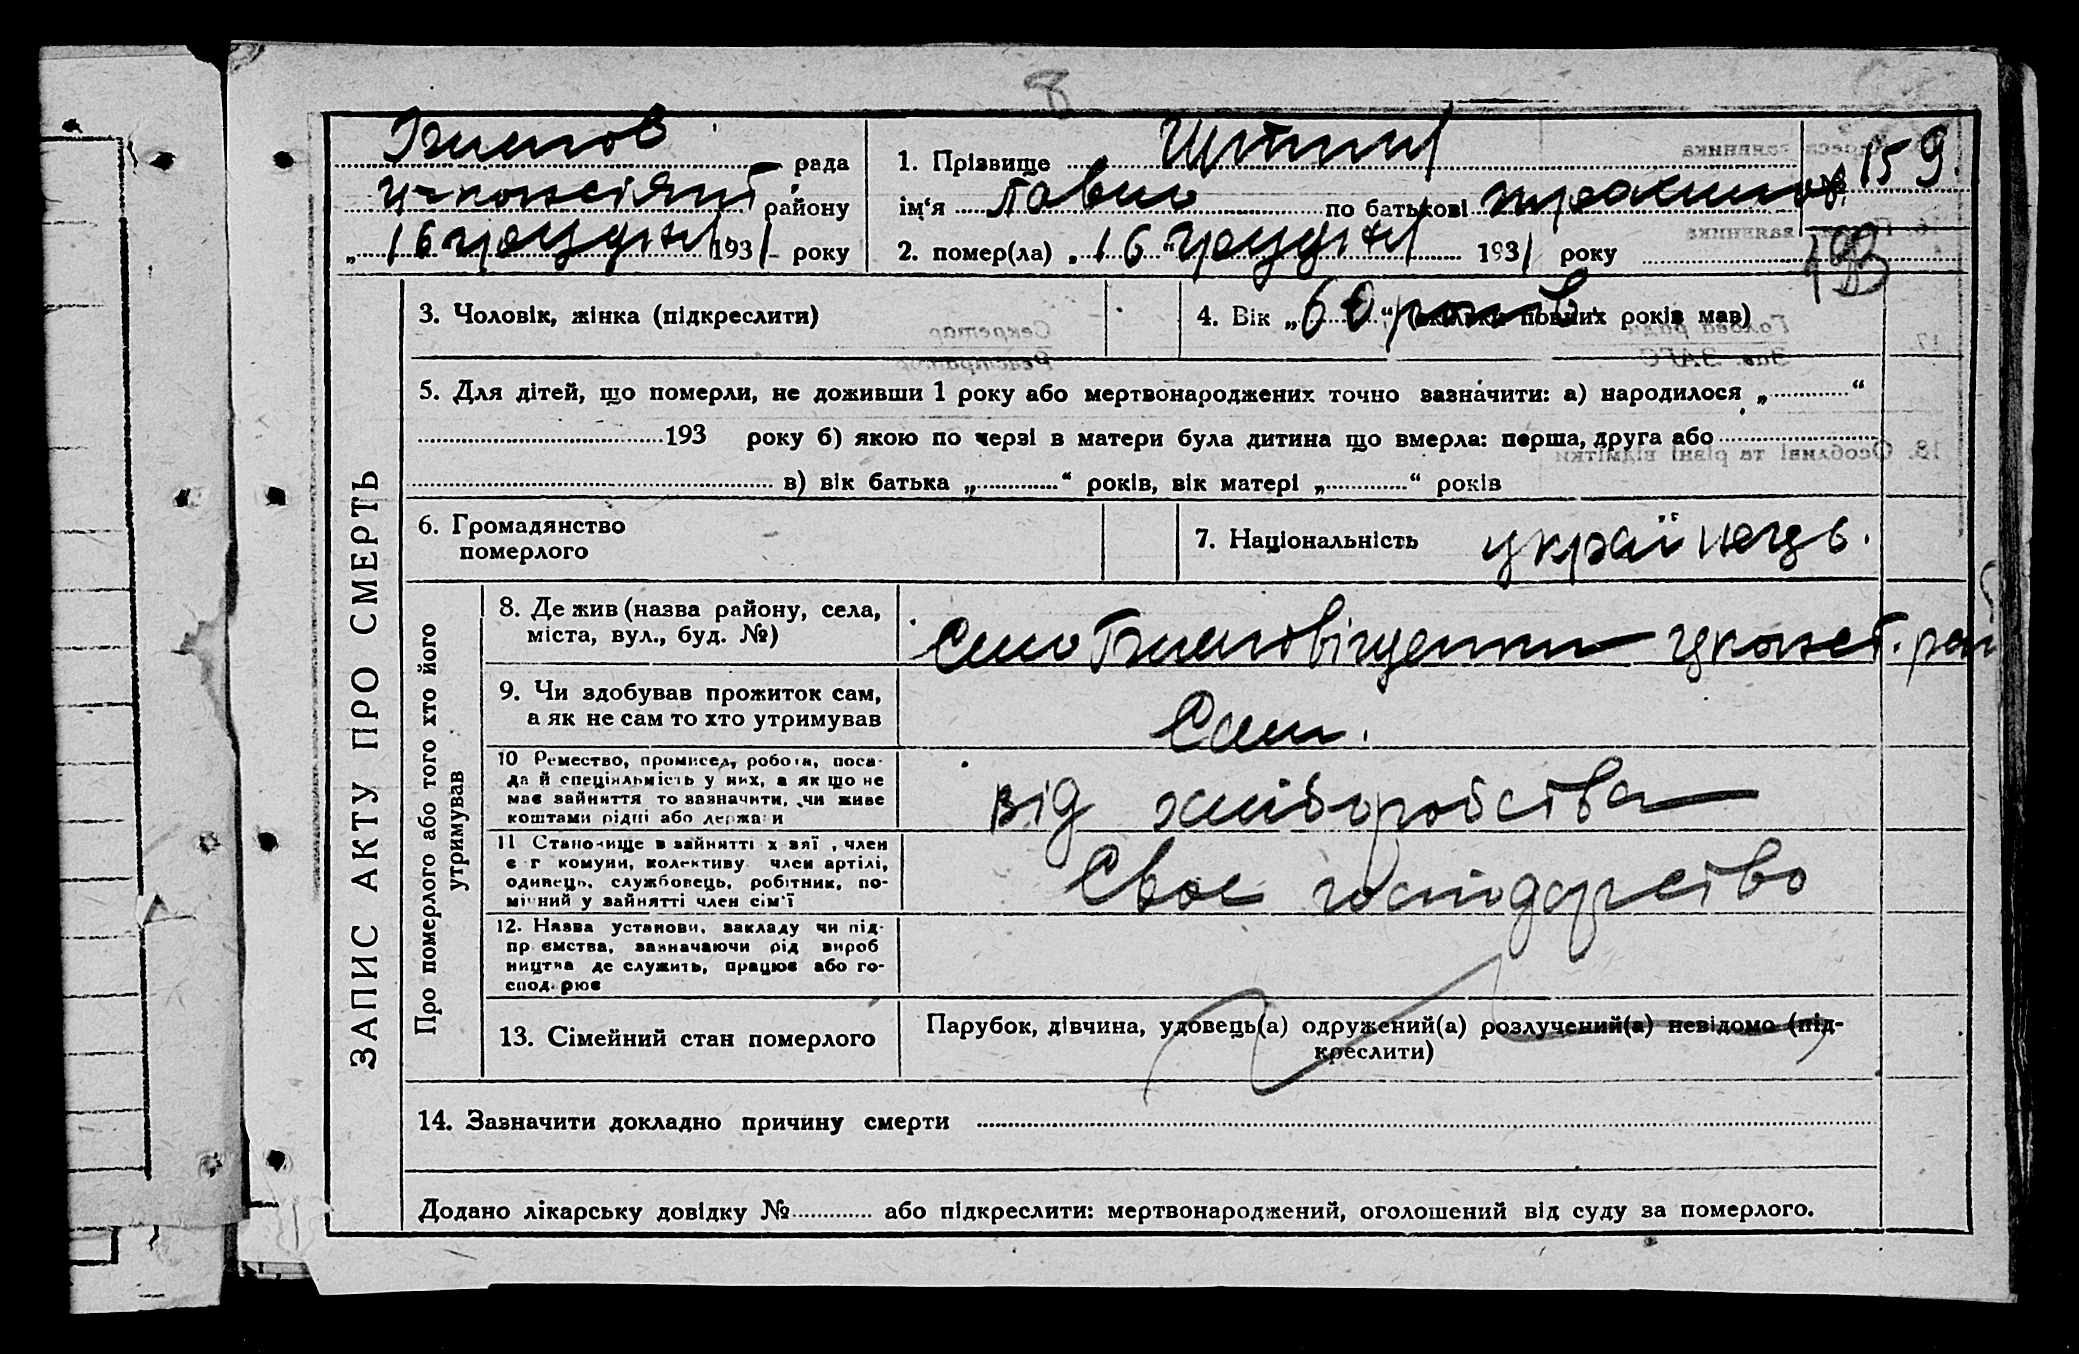 рада
району
„ 16 грудня 1931 року
1. Прізвище
ім'я Павло по батькові
2. помер(ла) „ 16 “ грудня 1931 року
159.
ЗАПИС АКТУ ПРО СМЕРТЬ
3. Чоловік, жінка (підкреслити)
4. Вік „ 60 років “ (скільки повних років мав)
5. Для дітей, що померли, не доживши 1 року або мертвонароджених точно зазначити: а) народилося „ “
193 року б) якою по черзі в матери була дитина що вмерла: перша, друга або
в) вік батька „ “ років, вік матері „ “ років
6. Громадянство
померлого
7. Національність українець.
Про померлого або того хто його
утримував
8. Де жив (назва району, села,
міста, вул., буд. №)
Село Благовіщенка рай
9. Чи здобував прожиток сам,
а як не сам то хто утримував
Сам.
10 Ремество, промисел, робота, поса-
да й спеціяльність у них, а як що не
має зайняття то зазначити, чи живе
коштами рідні або держави
від хліборобства
11 Становище в зайнятті х-зяї , член
с г комуни, колективу член артілі,
одинець, службовець, робітник, по-
мічний у зайнятті член сім'ї
Своє господарство
12. Назва установи, закладу чи під-
пр ємства, зазначаючи рід вироб
ництва де служить, працює або го-
спод рює
13. Сімейний стан померлого
Парубок, дівчина, удовець(а) одружений(а) розлучений(а) невідомо (під-
креслити)
14. Зазначити докладно причину смерти
Додано лікарську довідку № або підкреслити: мертвонароджений, оголошений від суду за померлого.